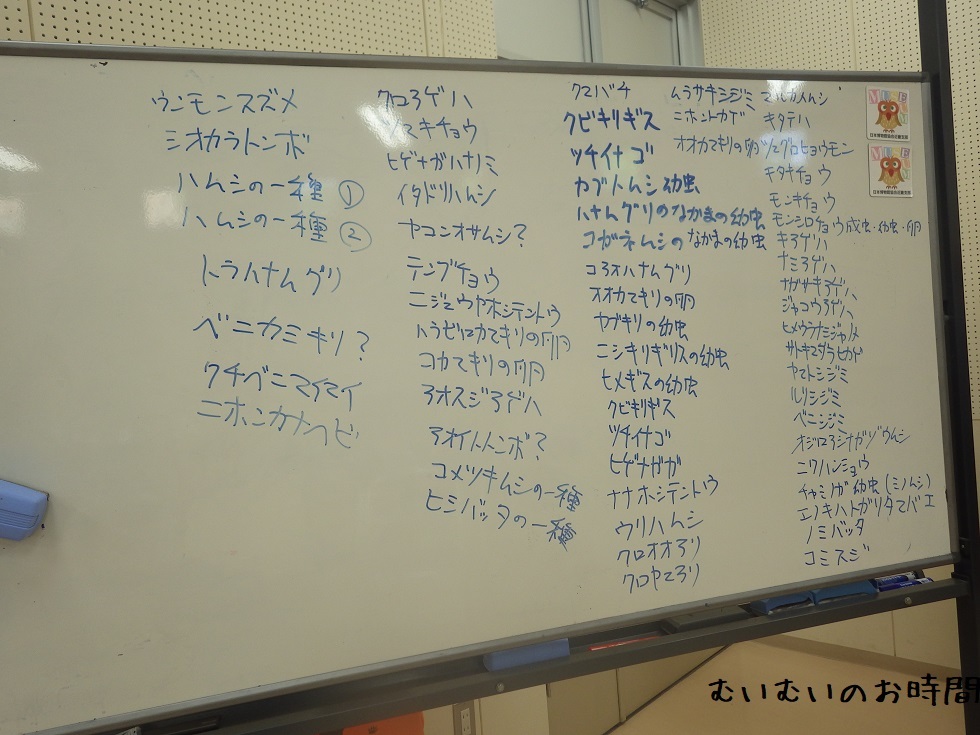 ウンモンスズメ
シオカラトンボ
ハムシの一種 ①
ハムシの一種 ②
トラハナムグリ
ベニカミキリ?
クチベニマイマイ
ニホンカナヘビ
クロアゲハ
ツマキチョウ
ヒゲナガハナノミ
イタドリハムシ
ヤコンオサムシ?
テングチョウ
ニジュウヤホシテントウ
ハラビロカマキリの卵
コカマキリの卵
アオスジアゲハ
アオイトトンボ?
コメツキムシの一種
ヒシバッタの一種
クマバチ
クビキリギス
ツチイナゴ
カブトムシ幼虫
ハナムグリのなかまの幼虫
コガネムシのなかまの幼虫
コアオハナムグリ
オオカマキリの卵
ヤブキリの幼虫
ニシキリギリスの幼虫
ヒメギスの幼虫
クビキリギス
ツチイナゴ
ヒゲナガガ
ナナホシテントウ
ウリハムシ
クロオオアリ
クロヤマアリ
ムラサキシジミ
ニホントカゲ
オオカマキリの卵
マルカメムシ
キタテハ
ツマグロヒョウモン
キタキチョウ
モンキチョウ
モンシロチョウ成虫・幼虫・卵
キアゲハ
ナミアゲハ
ナガサキアゲハ
ジャコウアゲハ
ヒメウラナミジャノメ
サトキマダラヒカゲ
ヤマトシジミ
ルリシジミ
ベニシジミ
オジロアシナガゾウムシ
ニワハンミョウ
チャミノガ幼虫(ミノムシ)
エノキハトガリタマバエ
ノミバッタ
コミスジ
むいむいのお時間